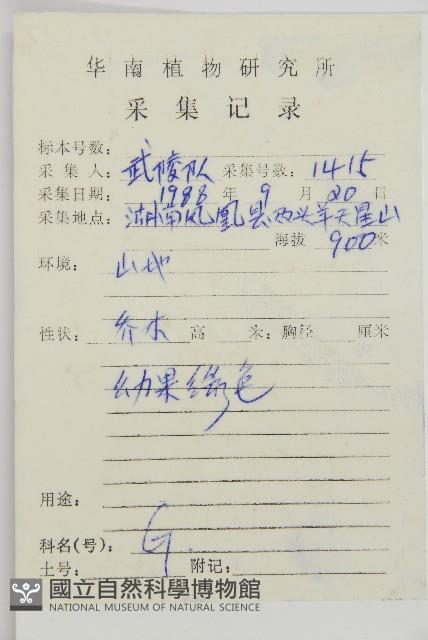 华南植物研究所
采集记录
标本号数:
采集人: 武陵队 采集号数: 1415
采集日期: 1988 年 9 月 20 日
采集地点: 湖南凤凰县两头羊天星山
海拔 900 米
环境: 山地
性状: 乔木 高 米; 胸径 厘米
幼果绿色
用途:
科名(号): G.
土号: 附记:
國立自然科學博物館
NATIONAL MUSEUM OF NATURAL SCIENCE